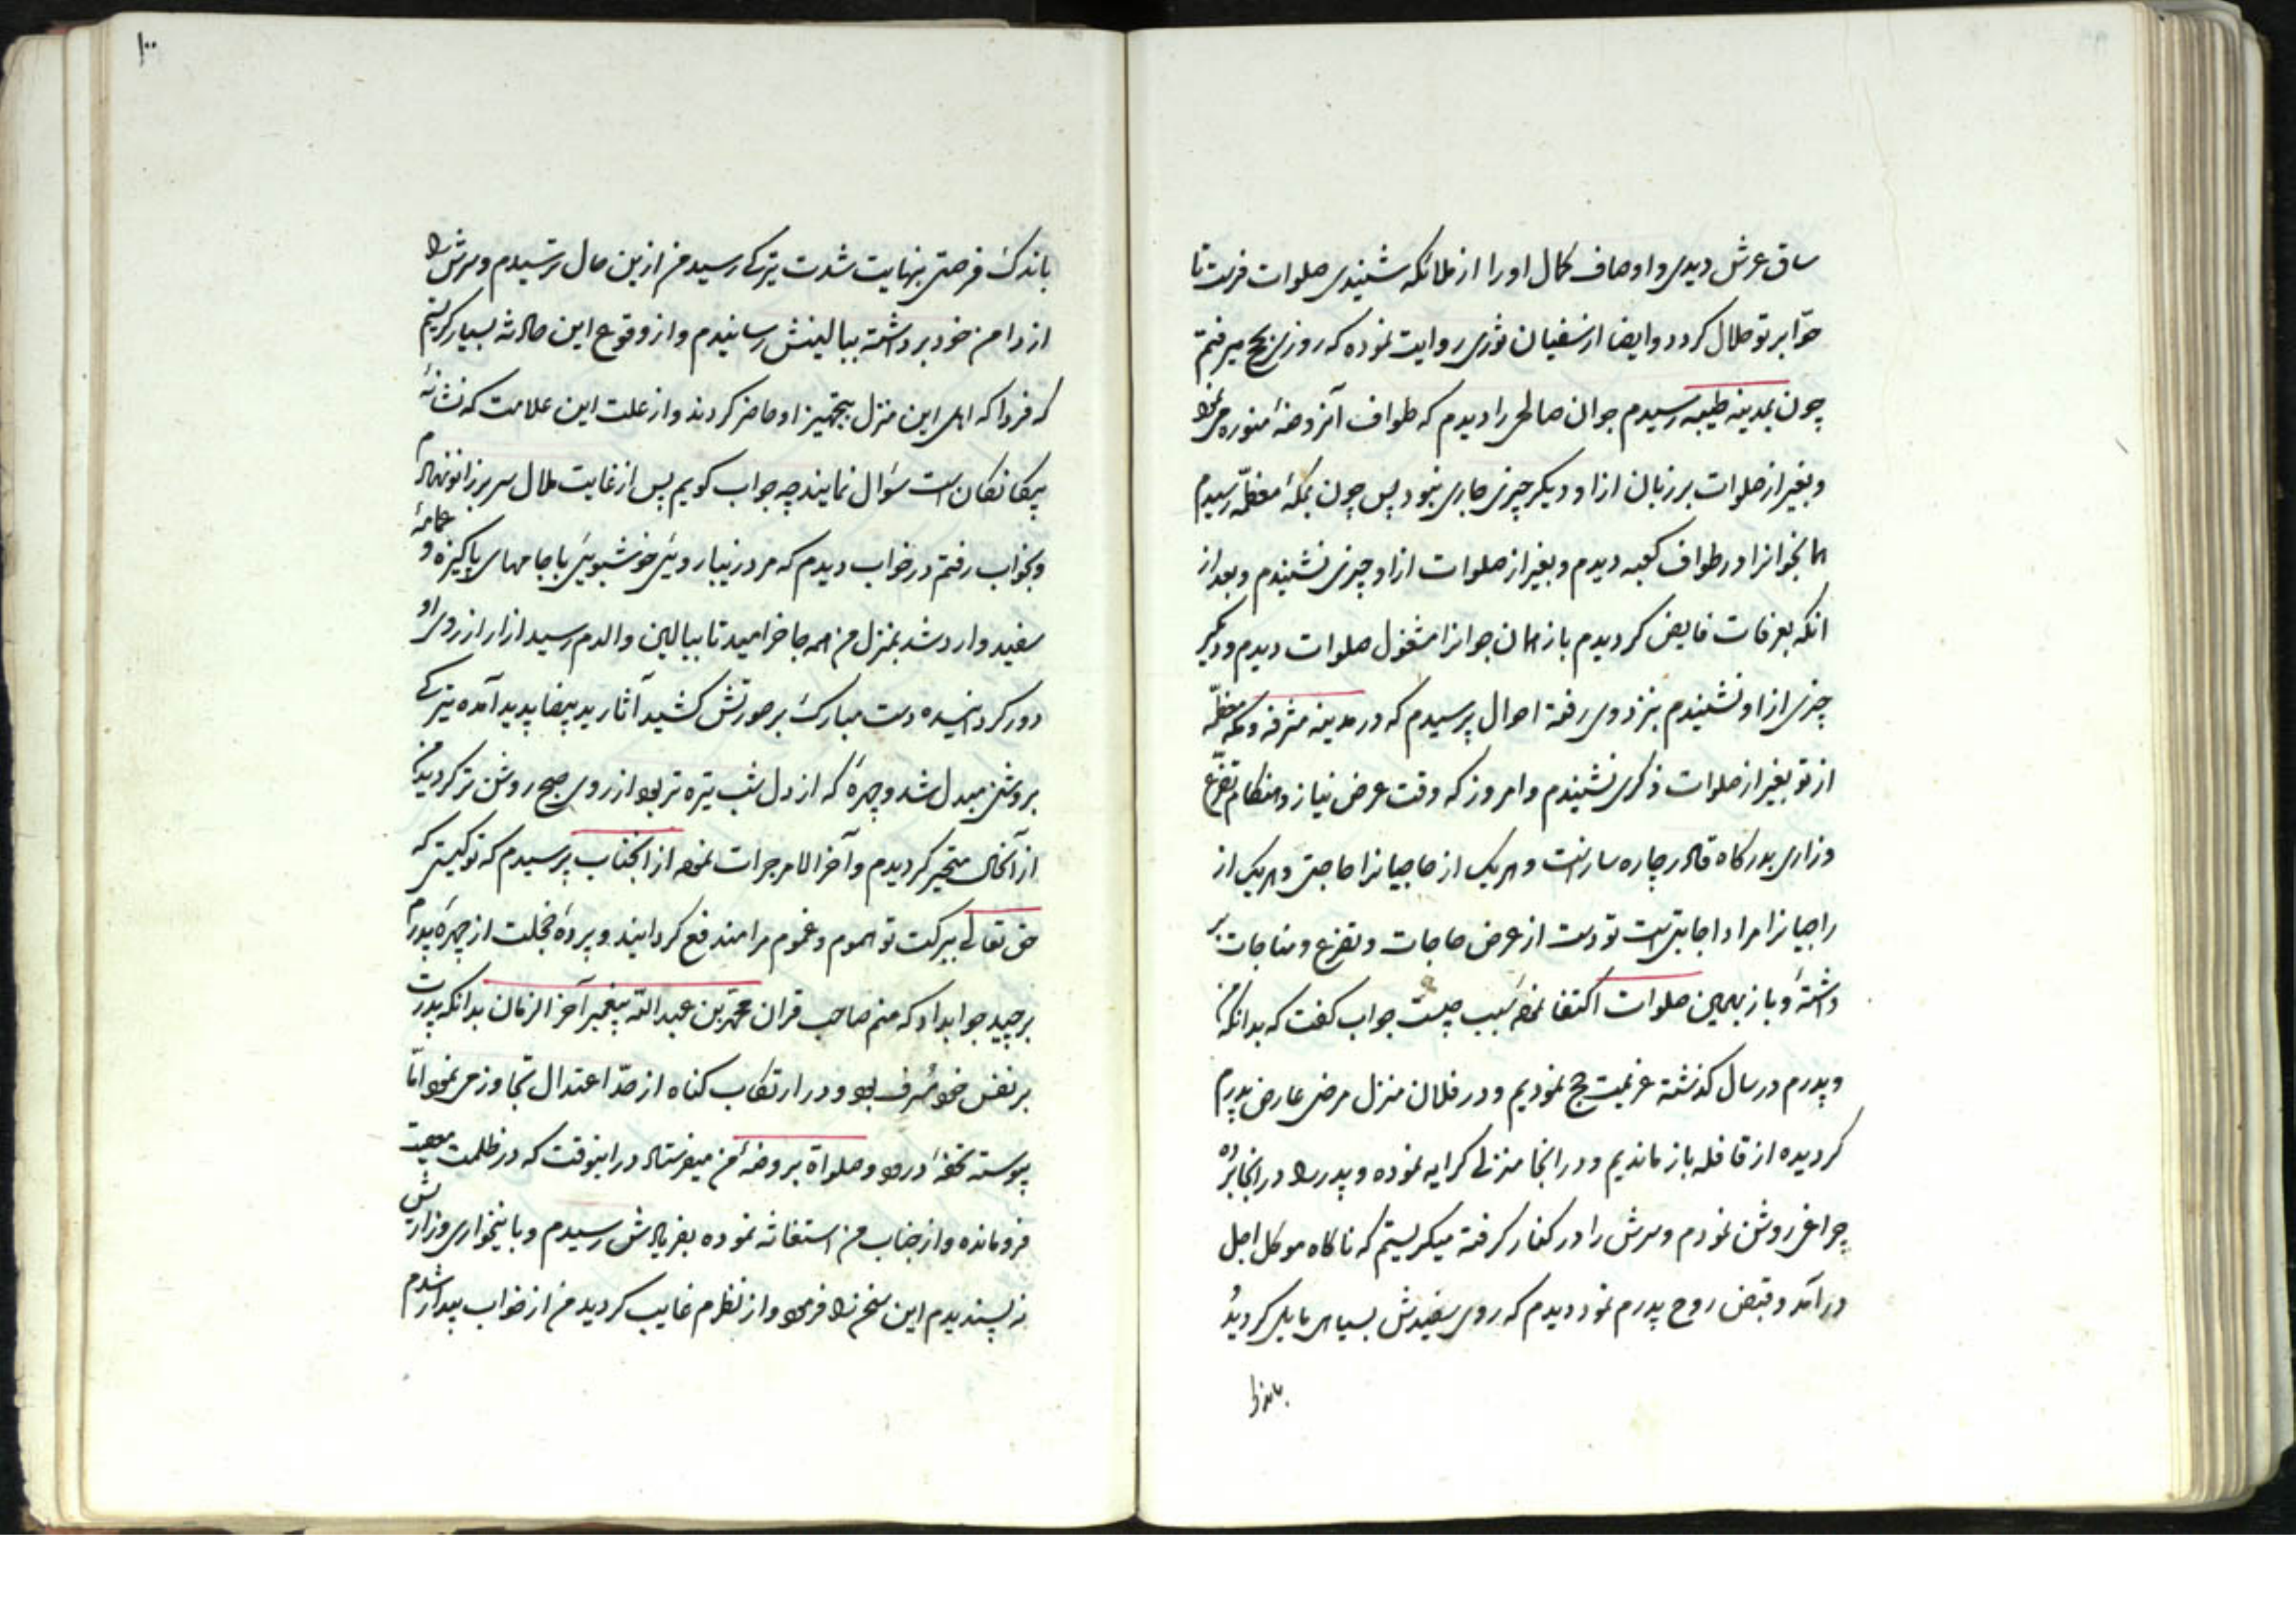 ساق عرش دیدی و اوصاف کمال او را از ملائکه شنیدی صلوات فرست تا
حوّا بر تو حلال کردد و ایضا از سفیان ثوری روایت نموده که روزی بحج میرفتم
چون بمدینه طیبه رسیدم جوان صالحی را دیدم که طواف آنروضهٔ منوره می نمود
و بغیر از صلوات بر زبان از او دیکر چیزی جاری نبود پس چون بمکهٔ معظّمه رسیدم
همانجوانرا در طواف کعبه دیدم و بغیر از صلوات از او چیزی نشنیدم و بعد از
انکه بعرفات فایض کردیدم باز همان جوانرا مشغول صلوات دیدم و دیکر
چیزی از او نشنیدم بنزد وی رفته احوال پرسیدم که در مدینه مشرفه و مکه معظّمه
از تو بغیر از صلوات ذکری نشنیدم و امروز که وقت عرض نیاز و هنکام تضرّع
و زاری بدرکاه قادر چاره سازنست و هریک از حاجیانرا حاجتی و هریک از
راجیانرا مراد اجابتی است تو دست از عرض حاجات و تضرع و مناجات بر
داشتهٔ و باز بهمین صلوات اکتفا نموده سبب چیست جواب کفت که بدانکه من
و پدرم در سال کذشته عزیمت حج نمودیم و در فلان منزل مرضی عارض پدرم
کردیده از قافله باز ماندیم و در انجا منزلی کرایه نموده و پدر را در انجا برده
چراغی روشن نمودم و سرش را در کنار کرفته میکریستم که ناکاه موکل اجل
در آمد و قبض روح پدرم نمود دیدم که روی سفیدش بسیاهی مایل کردیده
باندک
۱۰۰
باندک فرصتی بنهایت شدت تیرکی رسید من ازین حال ترسیدم و سرش را
از دامن خود برداشته ببالینش رسانیدم و از وقوع این حادثه بسیار کریستم
که فردا که اهل این منزل بتجهیز او حاضر کردند و از علت این علامت که نشانهٔ
است سؤال نمایند چه جواب کویم پس از غایت ملال سر بر زانو نهادم
و بخواب رفتم در خواب دیدم که مرد زیبا رویی خوشبویی با جامهای پاکیزه و عمامهٔ
سفید وارد شد بمنزل من همه جا خرامید تا ببالین والدم رسید ازار از روی او
دور کردانیده دست مبارک بر صورتش کشید آثار ید بیضا پدید آمده تیرکی
بروشنی مبدل شد و چهرهٔ که از دل شب تیره تر بود از روی صبح روشن تر کردید من
از آنحال متحیر کردیدم و آخر الامر جرات نموده از انجناب پرسیدم که تو کیستی که
حق تعالی ببرکت تو هموم و غموم مرا مندفع کردانید و پردهٔ خجلت از چهرهٔ پدرم
برچید جوابداد که منم صاحب قران محمّد بن عبد اللّه پیغمبر آخر الزمان بدانکه پدرت
بر نفس خود مسرف بود و در ارتکاب کناه از حدّ اعتدال تجاوز می نمود امّا
پیوسته تحفهٔ درود و صلواة بر روضهٔ من میفرستاد در اینوقت که در ظلمت معصیت
فرو مانده و از جناب من استغاثه نموده بفریادش رسیدم و باینخواری و زاریش
نه پسندیدم این سخن را فرمود و از نظرم غایب کردید من از خواب بیدار شدم